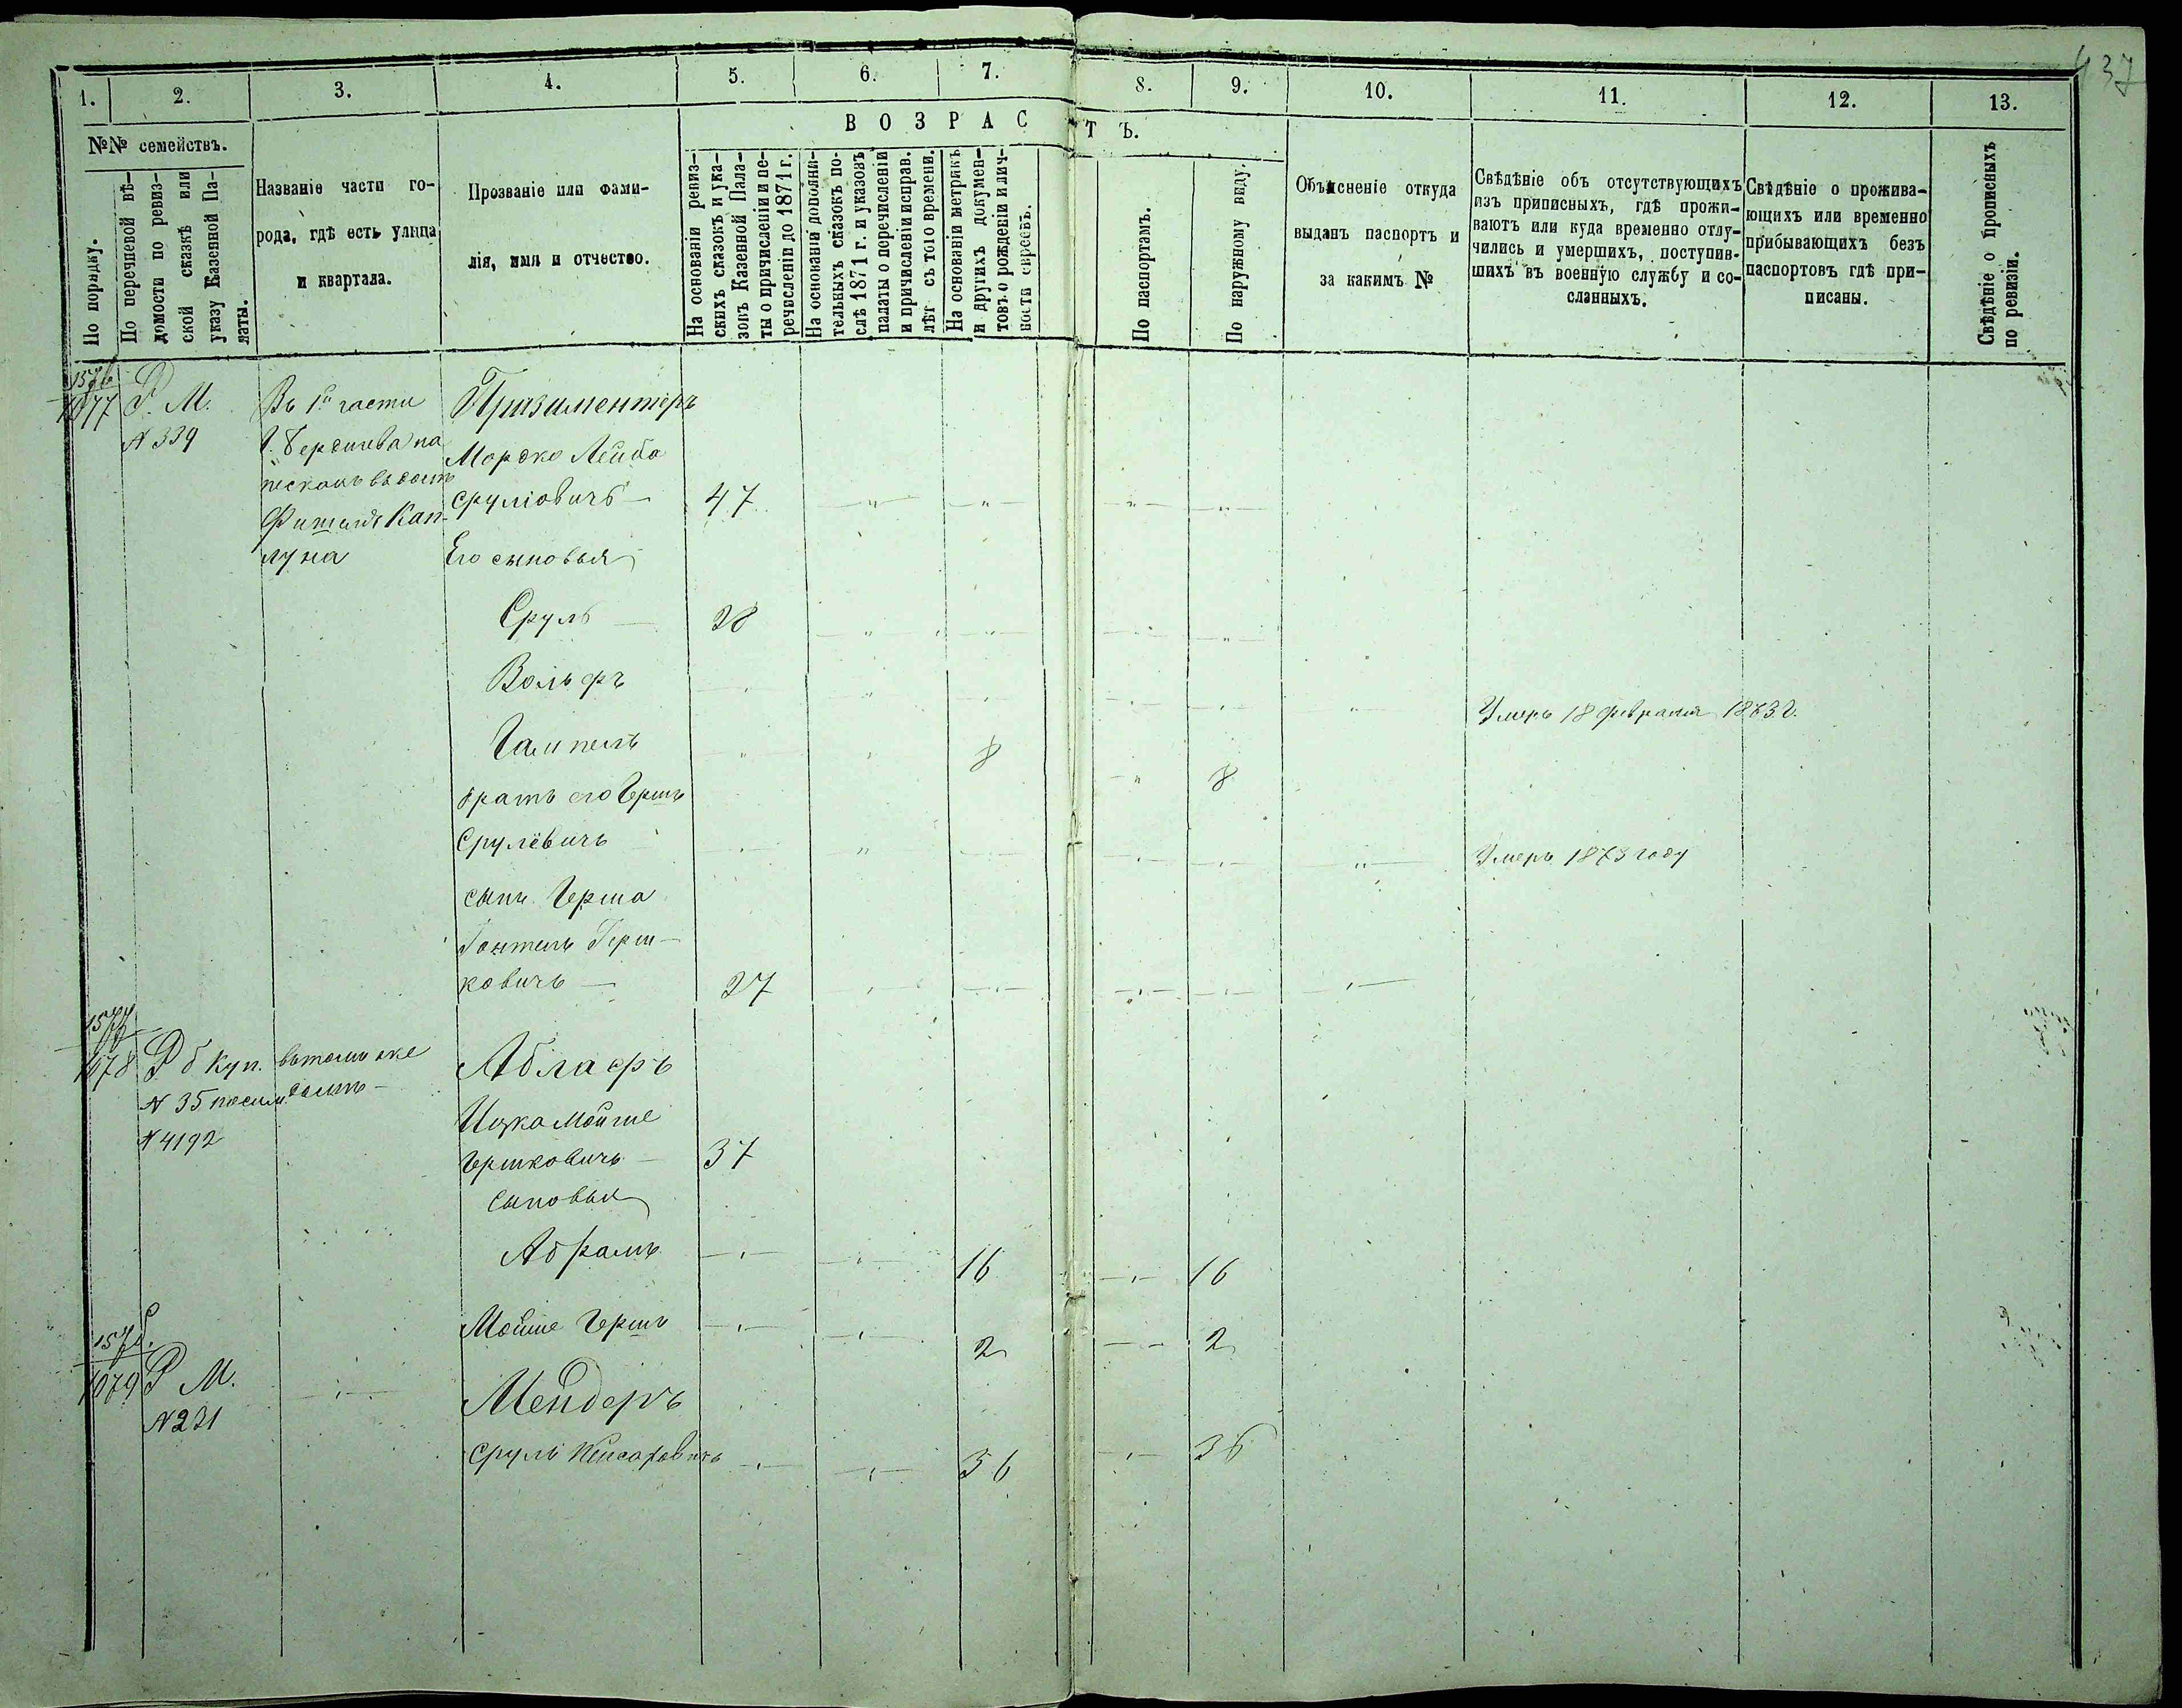 437
1. 2. 3. 4. 5. 6. 7. 8. 9. 10. 11. 12. 13.
№№ семействъ.
По порядку.
По перечневой вѣ-
домости по ревиз-
ской сказкѣ или
указу Казенной Па-
латы.
Названіе части го-
рода, гдѣ есть улица
и квартала.
Прозваніе или фами-
лія, имя и отчество.
ВОЗРАСТЪ.
На основаніи ревиз-
скихъ сказокъ и ука-
зовъ Казенной Пала-
ты о причисленіи и пе-
речисленіи до 1871 г.
На основаніи дополни-
тельныхъ сказокъ по-
слѣ 1871 г. и указовъ
палаты о перечисленіи
и причисленіи исправ.
лѣт съ того времени.
На основаніи метрикъ
и другихъ докумен-
товъ о рожденіи и лич-
ности евреевъ.
По паспортамъ.
По наружному виду.
Объясненіе откуда
выданъ паспортъ и
за какимъ №
Свѣдѣніе объ отсутствующихъ
изъ приписныхъ, гдѣ прожи-
ваютъ или куда временно отлу-
чились и умершихъ, поступив-
шихъ въ военную службу и со-
сланныхъ.
Свѣдѣніе о прожива-
ющихъ или временно
прибывающихъ безъ
паспортовъ гдѣ при-
писаны.
Свѣдѣніе о прописныхъ
по ревизіи.
1576
1077 Р. М. Въ 1й части
N 339 Г. Бердичева на
пескахъ въ домѣ
Кап-
луна
Призаментеръ
Мордко Лейба
Сруліовичъ — 47
Его сыновья
Сруль — 28
Вольфъ Умеръ 18 февраля 1873 г.
Гампель 8 8
братъ его Гершъ
Срулёвичъ Умеръ 1873 году
сынъ Герша
Герш-
ковичъ — 27
1577
1078 Р б Куп. въ томъ же
N 35 домѣ —
N 4192
Аблафъ
Ицка Мойше
Гершковичъ — 37
сыновья
Абрамъ 16 16
Мойше Гершъ 2 2
1578
1079 Р М.
N 231
Мендеръ
Сруль 36 36